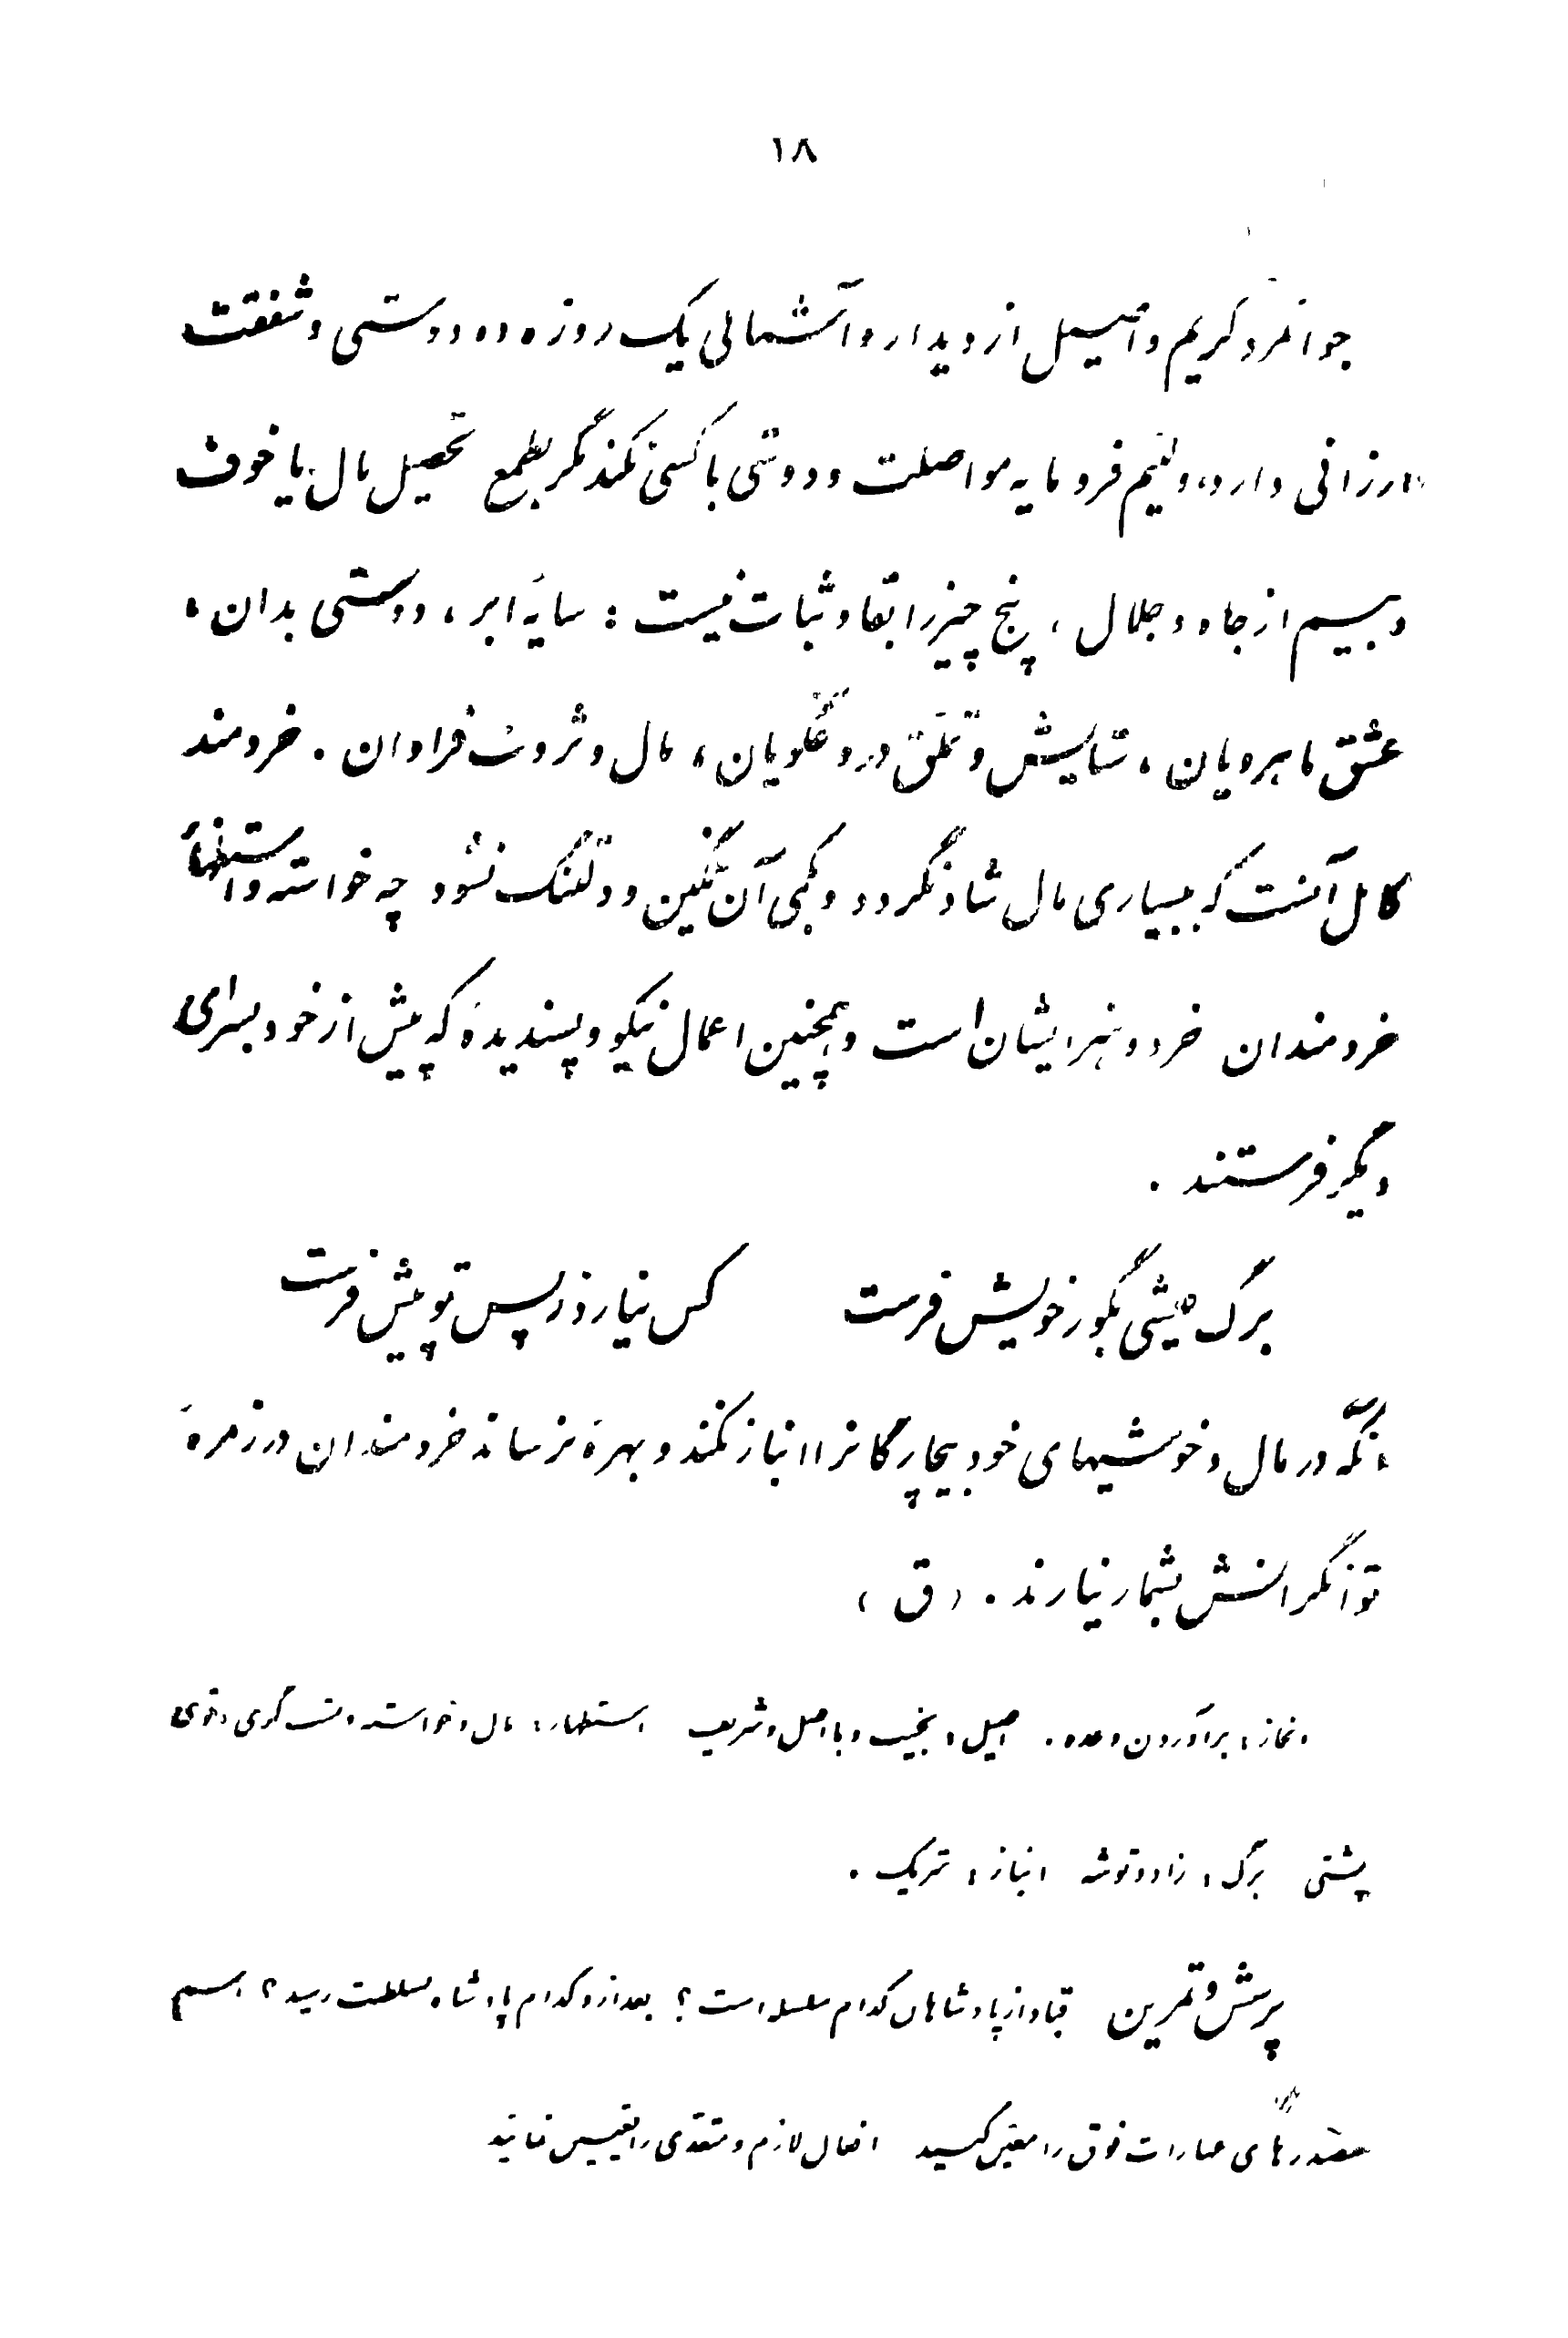 ۱۸
جوانمرد کریم و اصیل از دیدار و آشنائی یک روزه ده دوستی و شفقت
ارزانی دارد، و لئیم فرومایه مواصلت و دوستی با کسی نکند مگر بطمع تحصیل مال یا خوف
و بیم از جاه و جلال ، پنج چیز را بقا و ثبات نیست : سایهٔ ابر ، دوستی بدان ،
عشق ماهرویان ، ستایش و تملّق دروغگویان ، مال و ثروت فراوان . خردمند
کامل آنست که ببسیاری مال شاد نگردد و بکمی آن غمگین و دلتنگ نشود چه خواسته و استظهار
خردمندان خرد و هنر ایشان است و همچنین اعمال نیکو و پسندیدهٔ که پیش از خود بسرای
دیگر فرستند .
برگ عیشی بگور خویش فرست کس نیارد ز پس تو پیش فرست
آنکه در مال و خوشیهای خود بیچارگانرا انباز نکند و بهرهٔ نرساند خردمندان در زمرهٔ
توانگرانش بشمار نیارند . (ق)
انجاز ، برآوردن وعده . اصیل ، نجیب و با اصل و شریف استظهار ، مال و خواسته و پشت گرمی و قوی
پشتی برگ ، زاد و توشه انباز ، شریک .
پرسش و تمرین قباد از پادشاهان کدام سلسله است ؟ بعد از او کدام پادشاه بسلطنت رسید ؟ اسم
مصدرهای عبارات فوق را معیّن کنید افعال لازم و متعدّی را تعیین نمائید